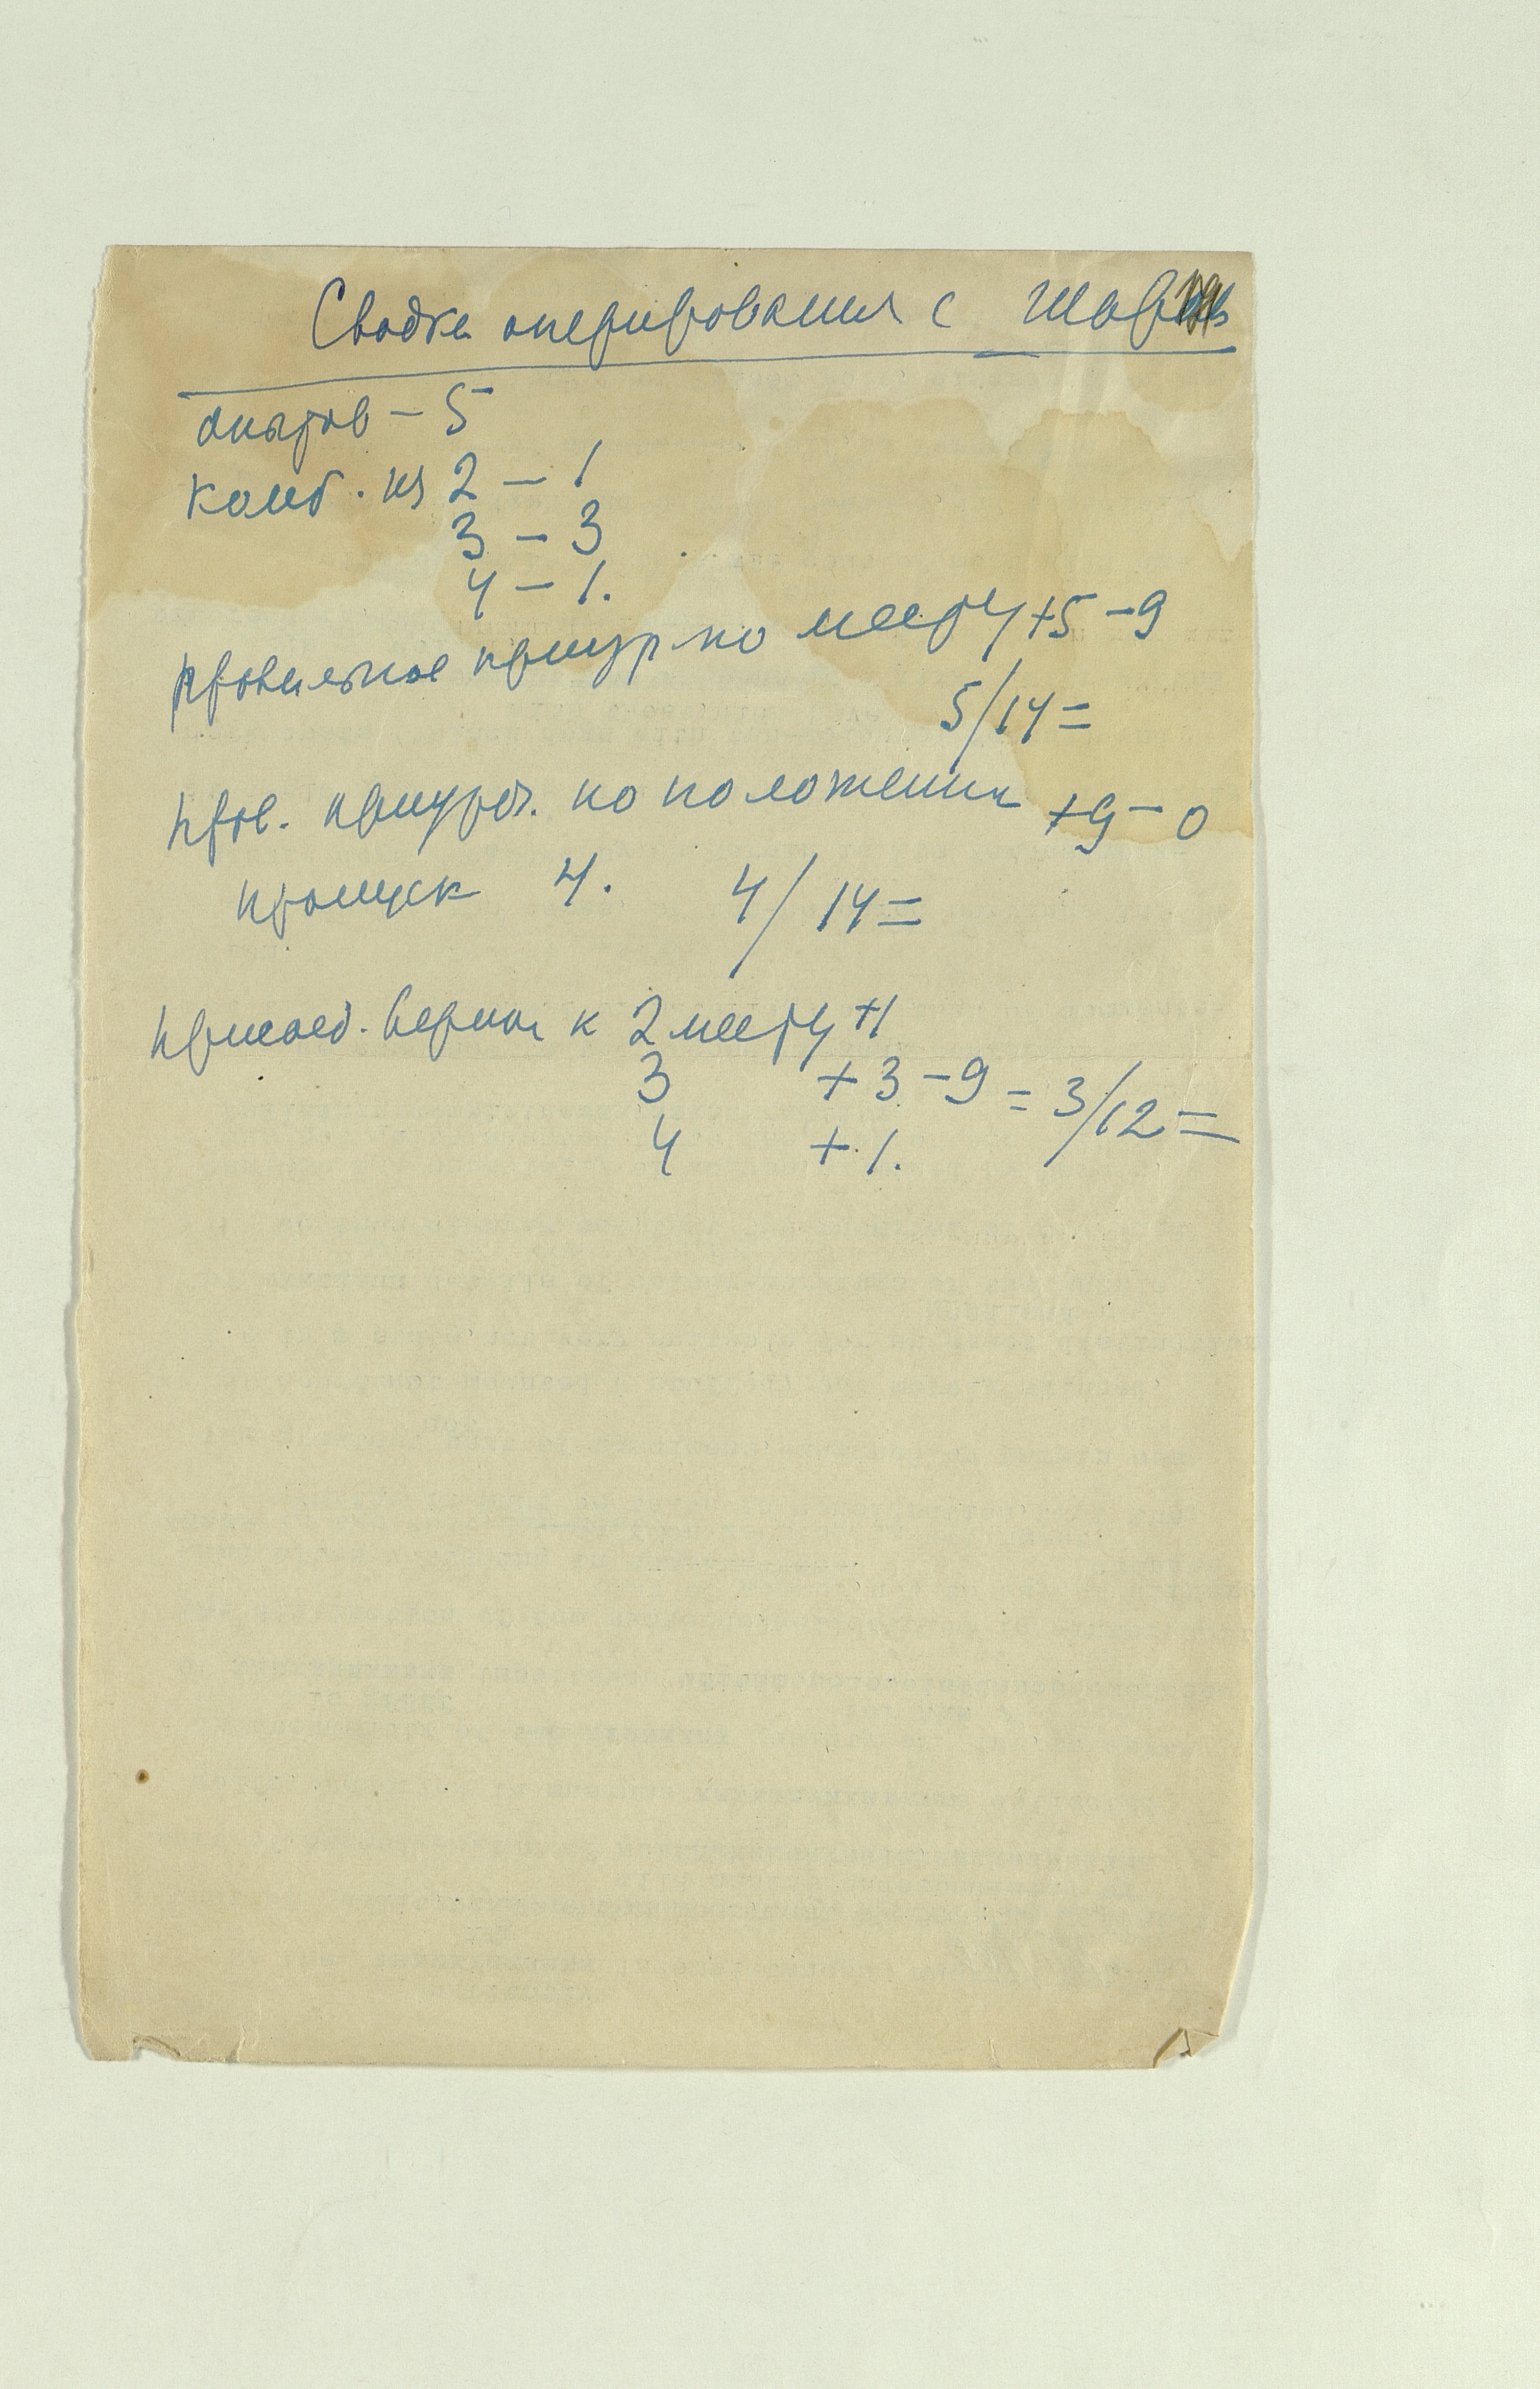 Сводка оперирования с
опытов - 5
комб. из 2 - 1
3 - 3
4 - 1.
правильное приур по месту +5 -9
5/14=
прав. приуроч. по положению +9 - 0
пропуск 4. 4/14=
присоед. верно к 2 месту +1
3 +3 -9 = 3/12=
4 +1.